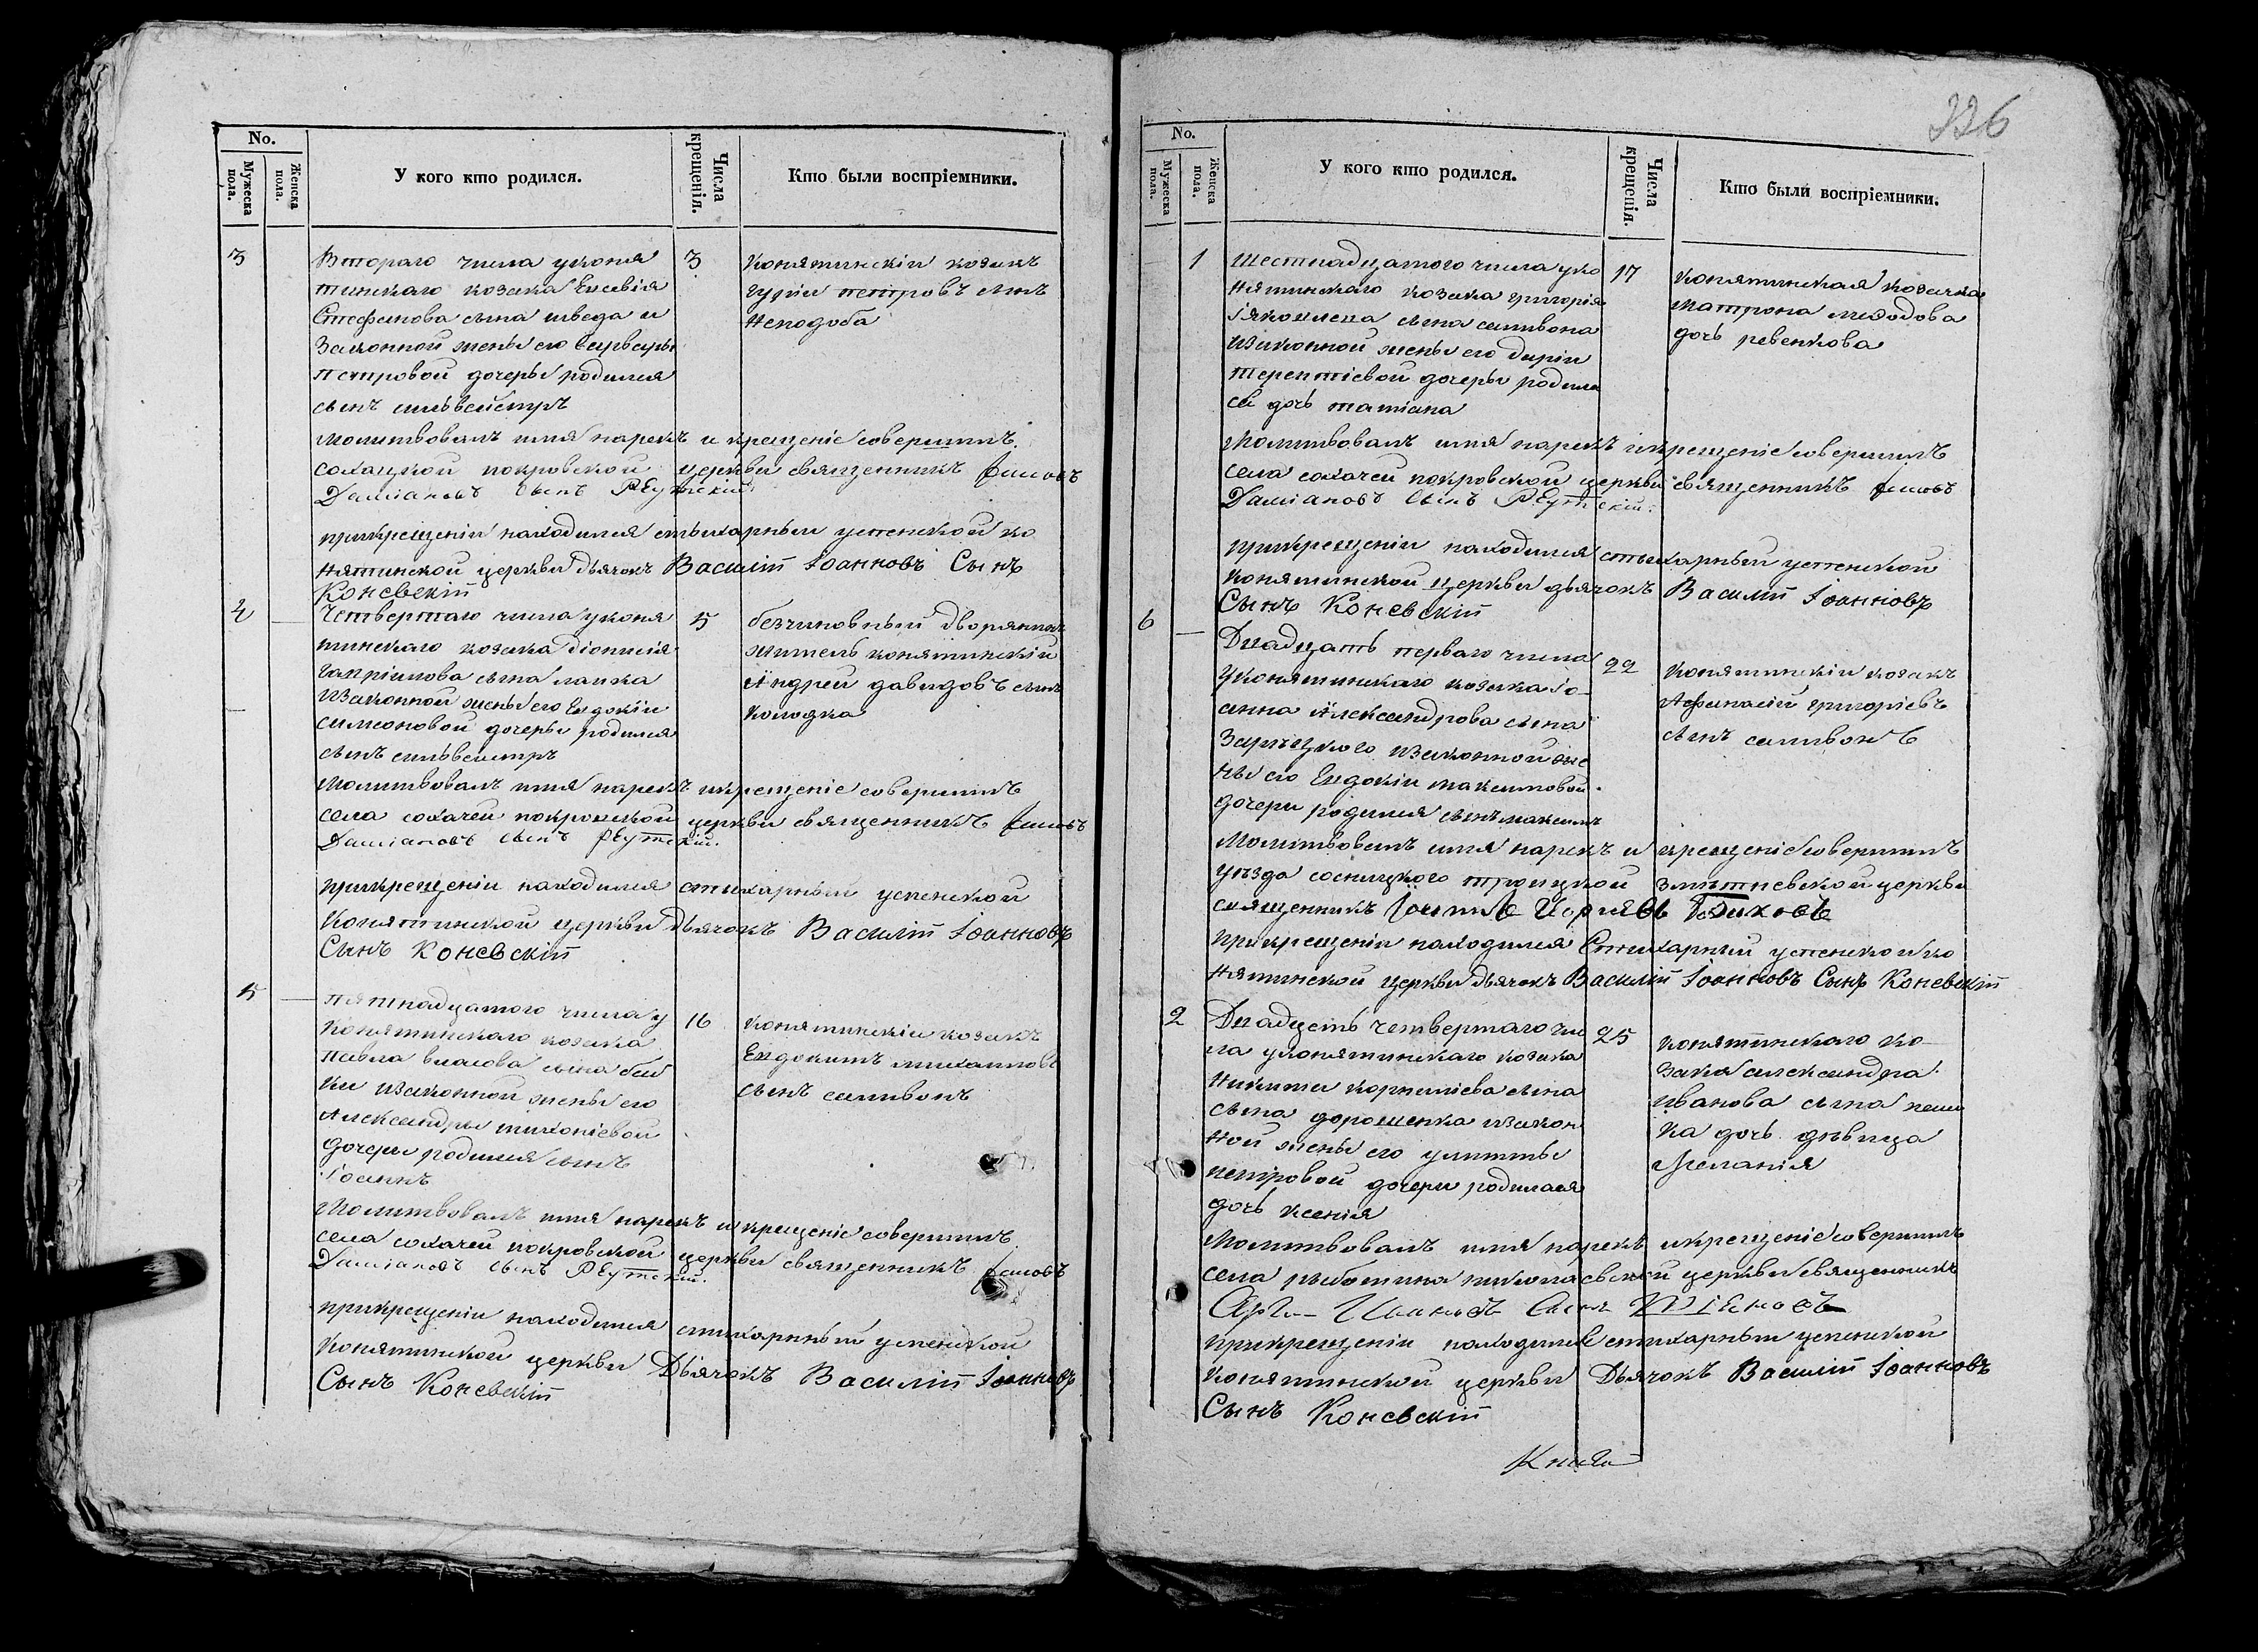 No.
Мужеска пола.
Женска пола.
У кого кто родился.
Числа крещенія.
Кто были воспріемники.
3
Втораго числа уконя
тинскаго козака Евсевія
Стефанова сына шведа и
Законной жены его Варвары
петровой дочеры родился
сынъ сильвейстръ
3
Конятинскіи козакъ
гурій петровъ сынъ
Неподоба
молитвовалъ имя нарекъ и крещеніе совершилъ
сохацкой покровской церкви священникъ
Даміановъ Сынъ РЕутскій.
прикрещеніи находился стыхарный успенской ко
нятинской церкви дьячокъ Василій Іоанновъ Сынъ
Коневскій
4
Четвертаго числа уконя
тинскаго козака діонисія
гавріилова сына
Изаконной жены его Евдокіи
симеоновой дочеры родился
сынъ сильвестръ
5
безчиновный дворянинъ
житель конятинскій
Андрей давидовъ сынъ
Колодка
Молитвовалъ имя нарекъ икрещеніе совершилъ
села сохачей покровской церкви священникъ
Даміановъ сынъ РЕутскій.
прикрещеніи находился стихарный успенской
Конятинской церкви Дьячокъ Василій Іоанновъ
Сынъ Коневскій
5
пятнадцатого числа у
Конятинскаго козака
павла власова сына бой
ки изаконной жены его
Александры
Дочеры родился сынъ
Іоаннъ
16
Конятинскіи козакъ
Евдокимъ михаиловъ
сынъ саливонъ
Молитвовалъ имя нарекъ и крещеніе совершилъ
села сохачей покровской церкви священникъ
Даміановъ сынъ РЕутскій.
прикрещеніи находился стихарный успенской
Конятинской церкви Дьячокъ Василій Іоанновъ
Сынъ Коневскій
326
No.
Мужеска пола.
Женска пола.
У кого кто родился.
Числа крещенія.
Кто были воспріемники.
1
Шестнадцатого числа уко
нятинскаго козака григорія
Іяковлева сына саливона
Изаконной жены его даріи
терентіевой дочеры родила
ся дочь татіана
17
Конятинская козачка
Матрона меѳодова
дочь ревенкова
Молитвовалъ имя нарекъ икрещеніе совершилъ
села сохачей покровской церкви священникъ
Даміановъ сынъ РЕутскій.
прикрещеніи находился стыхарный успенской
Конятинской церкви дьячокъ Василій Іоанновъ
Сынъ Коневскій
6
Двадцать перваго числа
Уконятинскаго козака Іо-
анна Александрова сына
Зарѣцкого изаконной же
ны его Евдокіи максимовой
дочеры родился сынъ максимъ
22
Конятинскіи козакъ
Афанасій григоріевъ
сынъ саливонъ
Молитвовалъ имя нарекъ и крещеніе совершилъ
уѣзда сосницкого троицкой змѣтневской церкви
священникъ
прикрещеніи находился Стихарный успенской ко
нятинской церкви дьячокъ Василій Іоанновъ Сынъ Коневскій
2
Двадцеть четвертаго чи
сла уконятинскаго козака
Никиты корниліева сына
сына дорошенка изакон
ной жены его улиты
петровой дочеры родилася
дочь ксенія
25
конятинскаго ко-
зака александра
Иванова сына
ка дочь дѣвица
Меланія
Молитвовалъ имя нарекъ икрещеніе совершилъ
села рыботина николаевской церкви священникъ
прикрещеніи находился стихарный успенской
Конятинской церкви Дьячокъ Василій Іоанновъ
Сынъ Коневскій